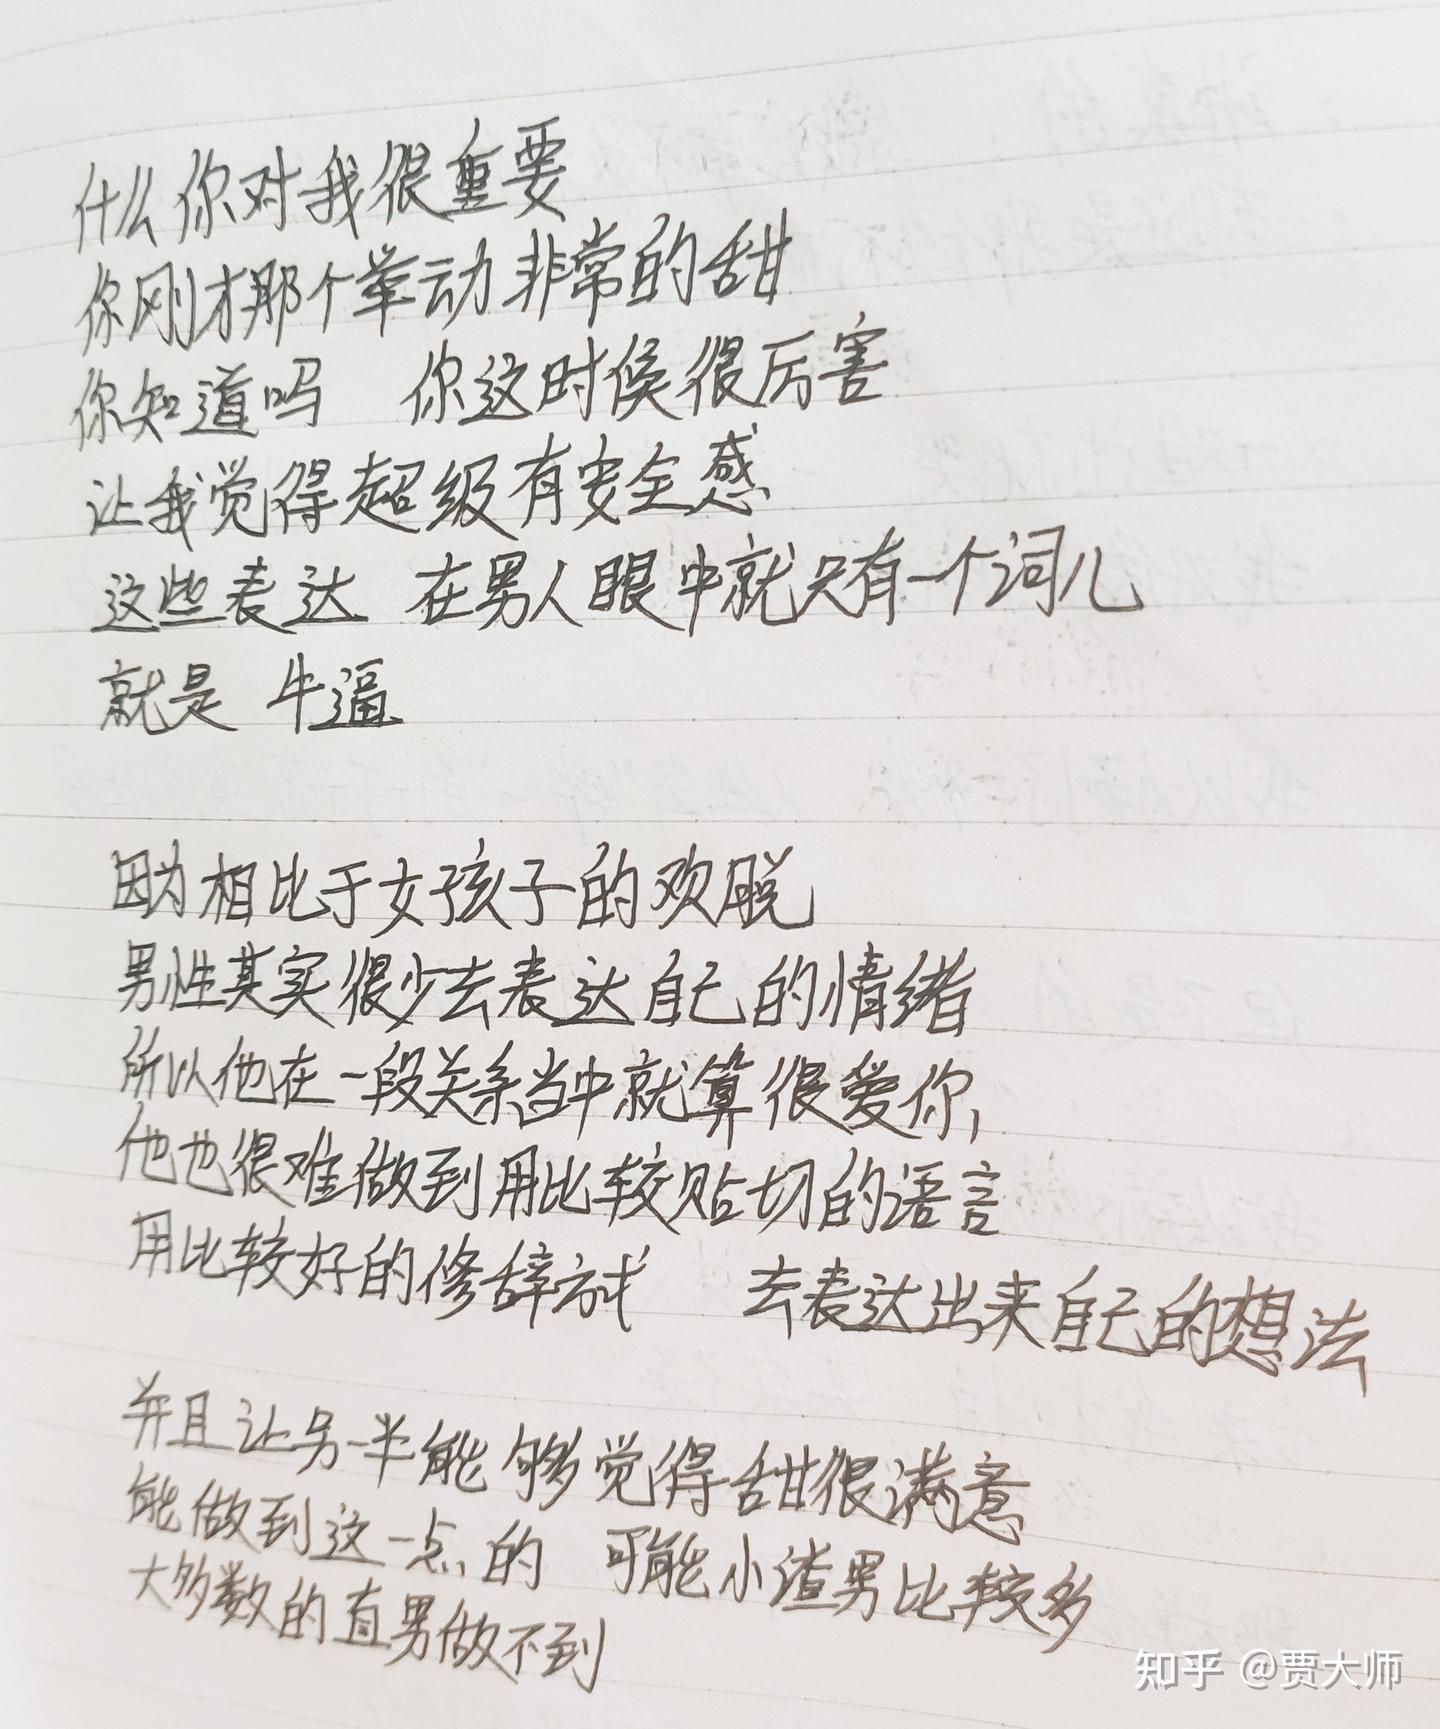 什么你对我很重要
你刚才那个举动非常的甜
你知道吗 你这时候很厉害
让我觉得超级有安全感
这些表达 在男人眼中就只有一个词儿
就是 牛逼
因为相比于女孩子的欢脱
男性其实很少去表达自己的情绪
所以他在一段关系当中就算很爱你,
他也很难做到用比较贴切的语言
用比较好的修辞方式 去表达出来自己的想法
并且让另一半能够觉得甜很满意
能做到这一点的 可能小渣男比较多
大多数的直男做不到
知乎 @贾大师